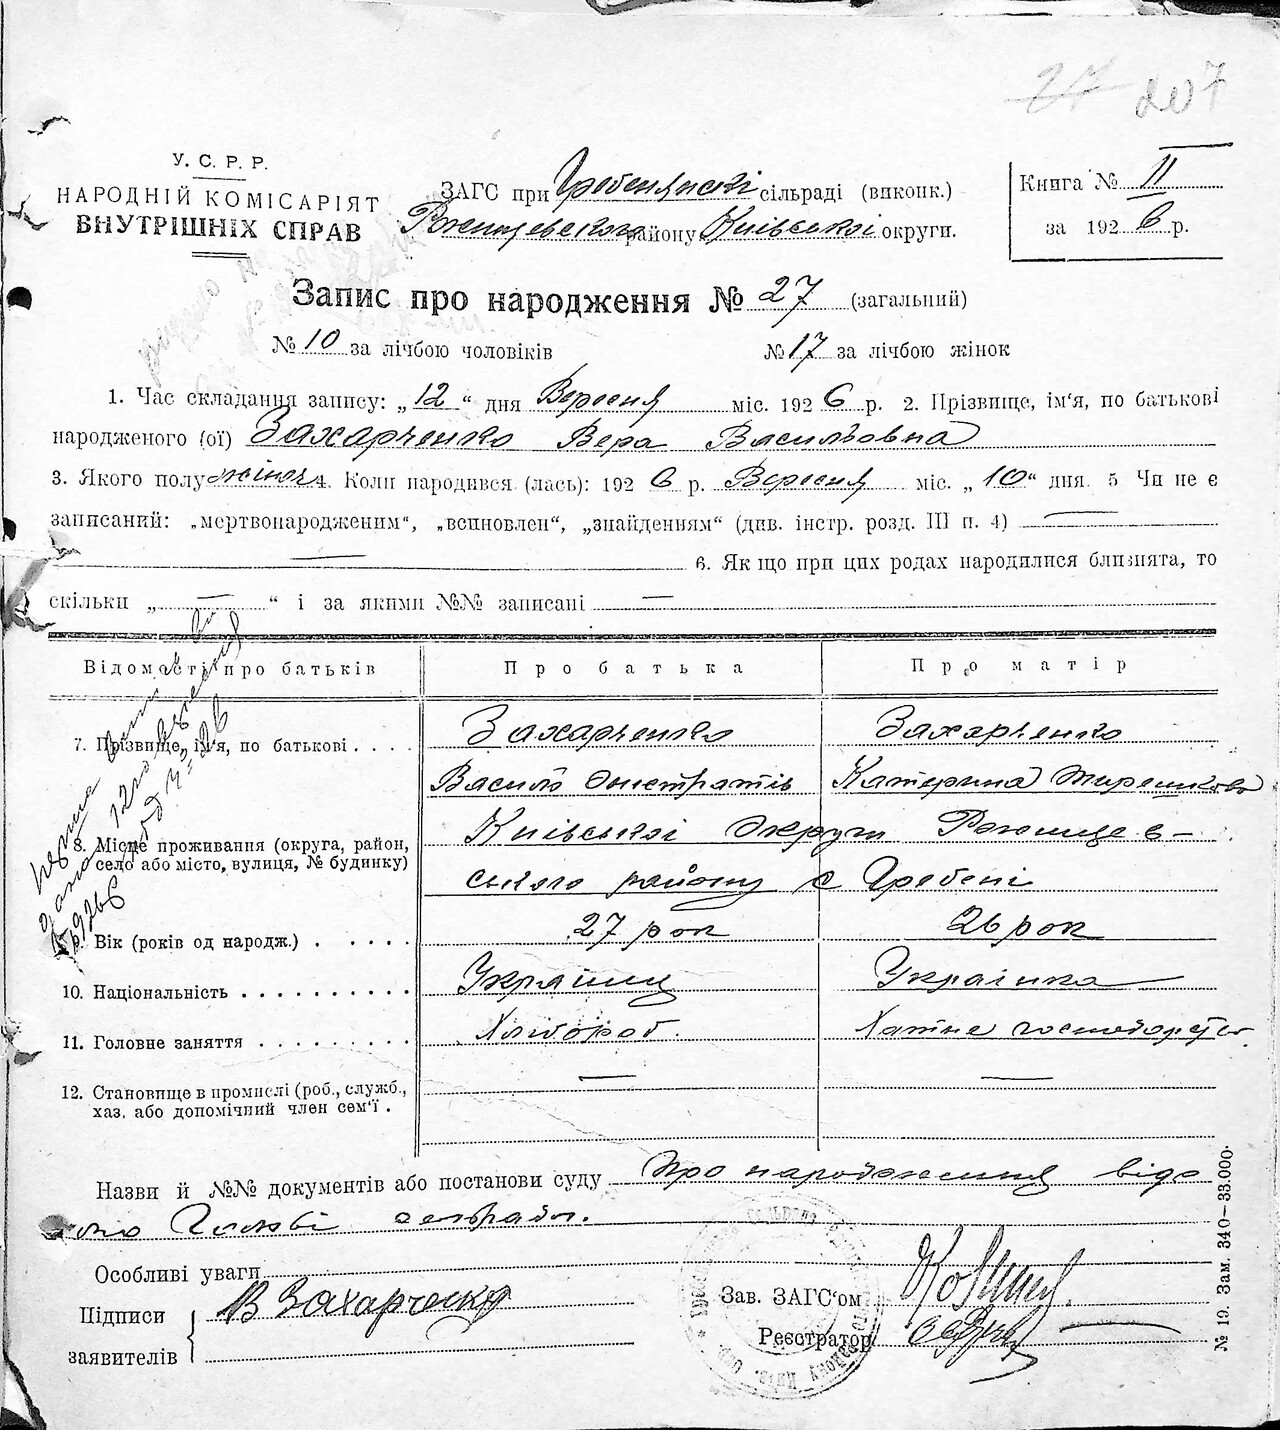 27 207
У. С. Р. Р.
НАРОДНІЙ КОМІСАРІЯТ
ВНУТРІШНІХ СПРАВ
ЗАГС при Гребенській сільраді (виконк.)
району Київської округи.
Книга № II
за 1926 р.
Запис про народження № 27 (загальний)
№ 10 за лічбою чоловіків № 17 за лічбою жінок
1. Час складання запису: „12“ дня Вересня міс. 1926 р. 2. Прізвище, ім'я, по батькові
народженого (ої) Захарченко Вера Васильовна
3. Якого полу жіноч. 4. Коли народився (лась): 1926 р. Вересня міс. „10“ дня. 5 Чи не є
записаний: „мертвонародженим“, „всиновлен“, „знайденням“ (див. інстр. розд. III п. 4) —
— 6. Як що при цих родах народилися близнята, то
скільки „ — “ і за якими №№ записані —
Відомості про батьків Про батька Про матір
7. Прізвище, ім'я, по батькові . . . . Захарченко Захарченко
Василь Катерина
8. Місце проживання (округа, район, село або місто, вулиця, № будинку) Київської Округи
району с Гребені
9. Вік (років од народж.) . . . . . 27 рок 26 рок
10. Національність . . . . . . . . . . Українец Українка
11. Головне заняття . . . . . . . . . Хлібороб. Хатне господарство.
12. Становище в промислі (роб., служб., — —
хаз. або допомічний член сем'ї .
Назви й №№ документів або постанови суду Про народження
сельради.
Особливі уваги
Підписи В Захарченко
заявителів
Зав. ЗАГС'ом
Реєстратор
№ 19. Зам. 340—33.000.